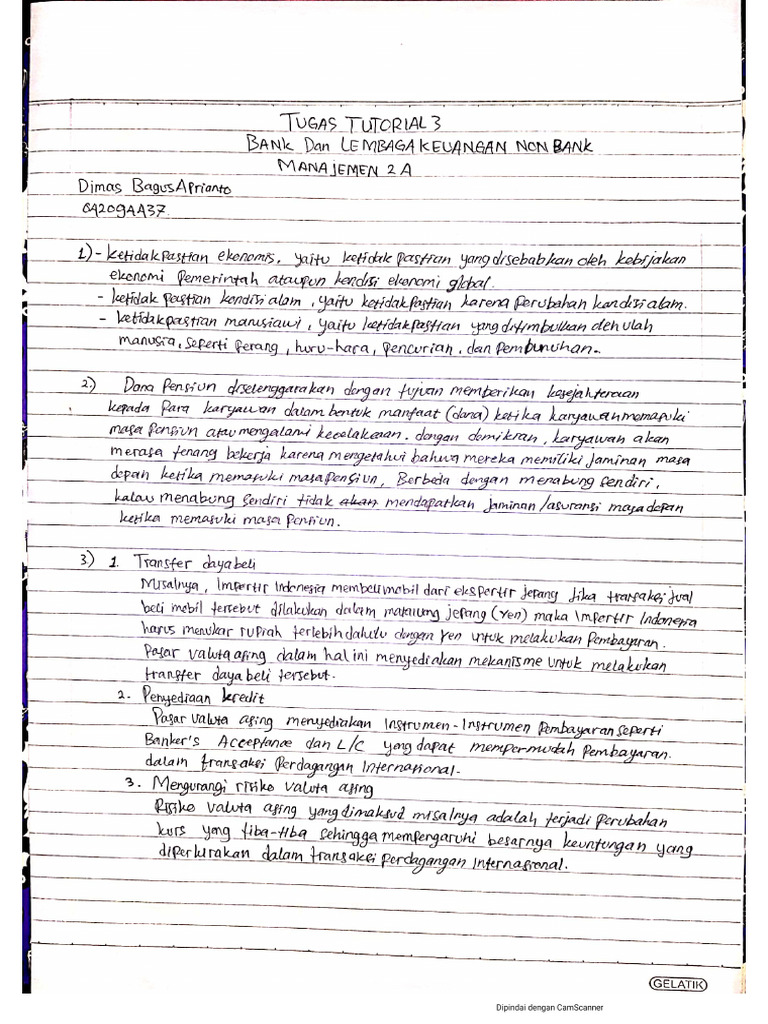 TUGAS TUTORIAL 3
BANK Dan LEMBAGA KEUANGAN NON BANK
MANAJEMEN 2 A
Dimas Bagus Aprianto
042094437.
1) - ketidakpastian ekonomis, yaitu ketidakpastian yang disebabkan oleh kebijakan
ekonomi pemerintah ataupun kondisi ekonomi global.
- ketidakpastian kondisi alam, yaitu ketidakpastian karena perubahan kondisi alam.
- ketidakpastian manusiawi, yaitu ketidakpastian yang ditimbulkan oleh ulah
manusia, seperti perang, huru-hara, pencurian, dan pembunuhan.
2.) Dana Pensiun diselenggarakan dengan tujuan memberikan kesejahteraan
kepada para karyawan dalam bentuk manfaat (dana) ketika karyawan memasuki
masa pensiun atau mengalami kecelakaan. dengan demikian, karyawan akan
merasa tenang bekerja karena mengetahui bahwa mereka memiliki jaminan masa
depan ketika memasuki masa pensiun, Berbeda dengan menabung sendiri,
kalau menabung sendiri tidak akan mendapatkan jaminan/asuransi masa depan
ketika memasuki masa pensiun.
3) 1. Transfer daya beli
Misalnya, Impertir Indonesia membeli mobil dari ekspertir jepang Jika transaksi jual
beli mobil tersebut dilakukan dalam matauang jepang (yen) maka Impertir Indonesia
harus menukar rupiah terlebih dahulu dengan yen untuk melakukan pembayaran.
Pasar valuta asing dalam hal ini menyediakan mekanisme untuk melakukan
transfer daya beli tersebut.
2. Penyediaan kredit
Pasar valuta asing menyediakan Instrumen-Instrumen pembayaran seperti
Banker's Acceptance dan L/C yang dapat mempermudah pembayaran.
dalam transaksi perdagangan Internasional.
3. Mengurangi risiko valuta asing
Risiko valuta asing yang dimaksud misalnya adalah terjadi perubahan
kurs yang tiba-tiba sehingga mempengaruhi besarnya keuntungan yang
diperkirakan dalam transaksi perdagangan Internasional.
GELATIK
Dipindai dengan CamScanner